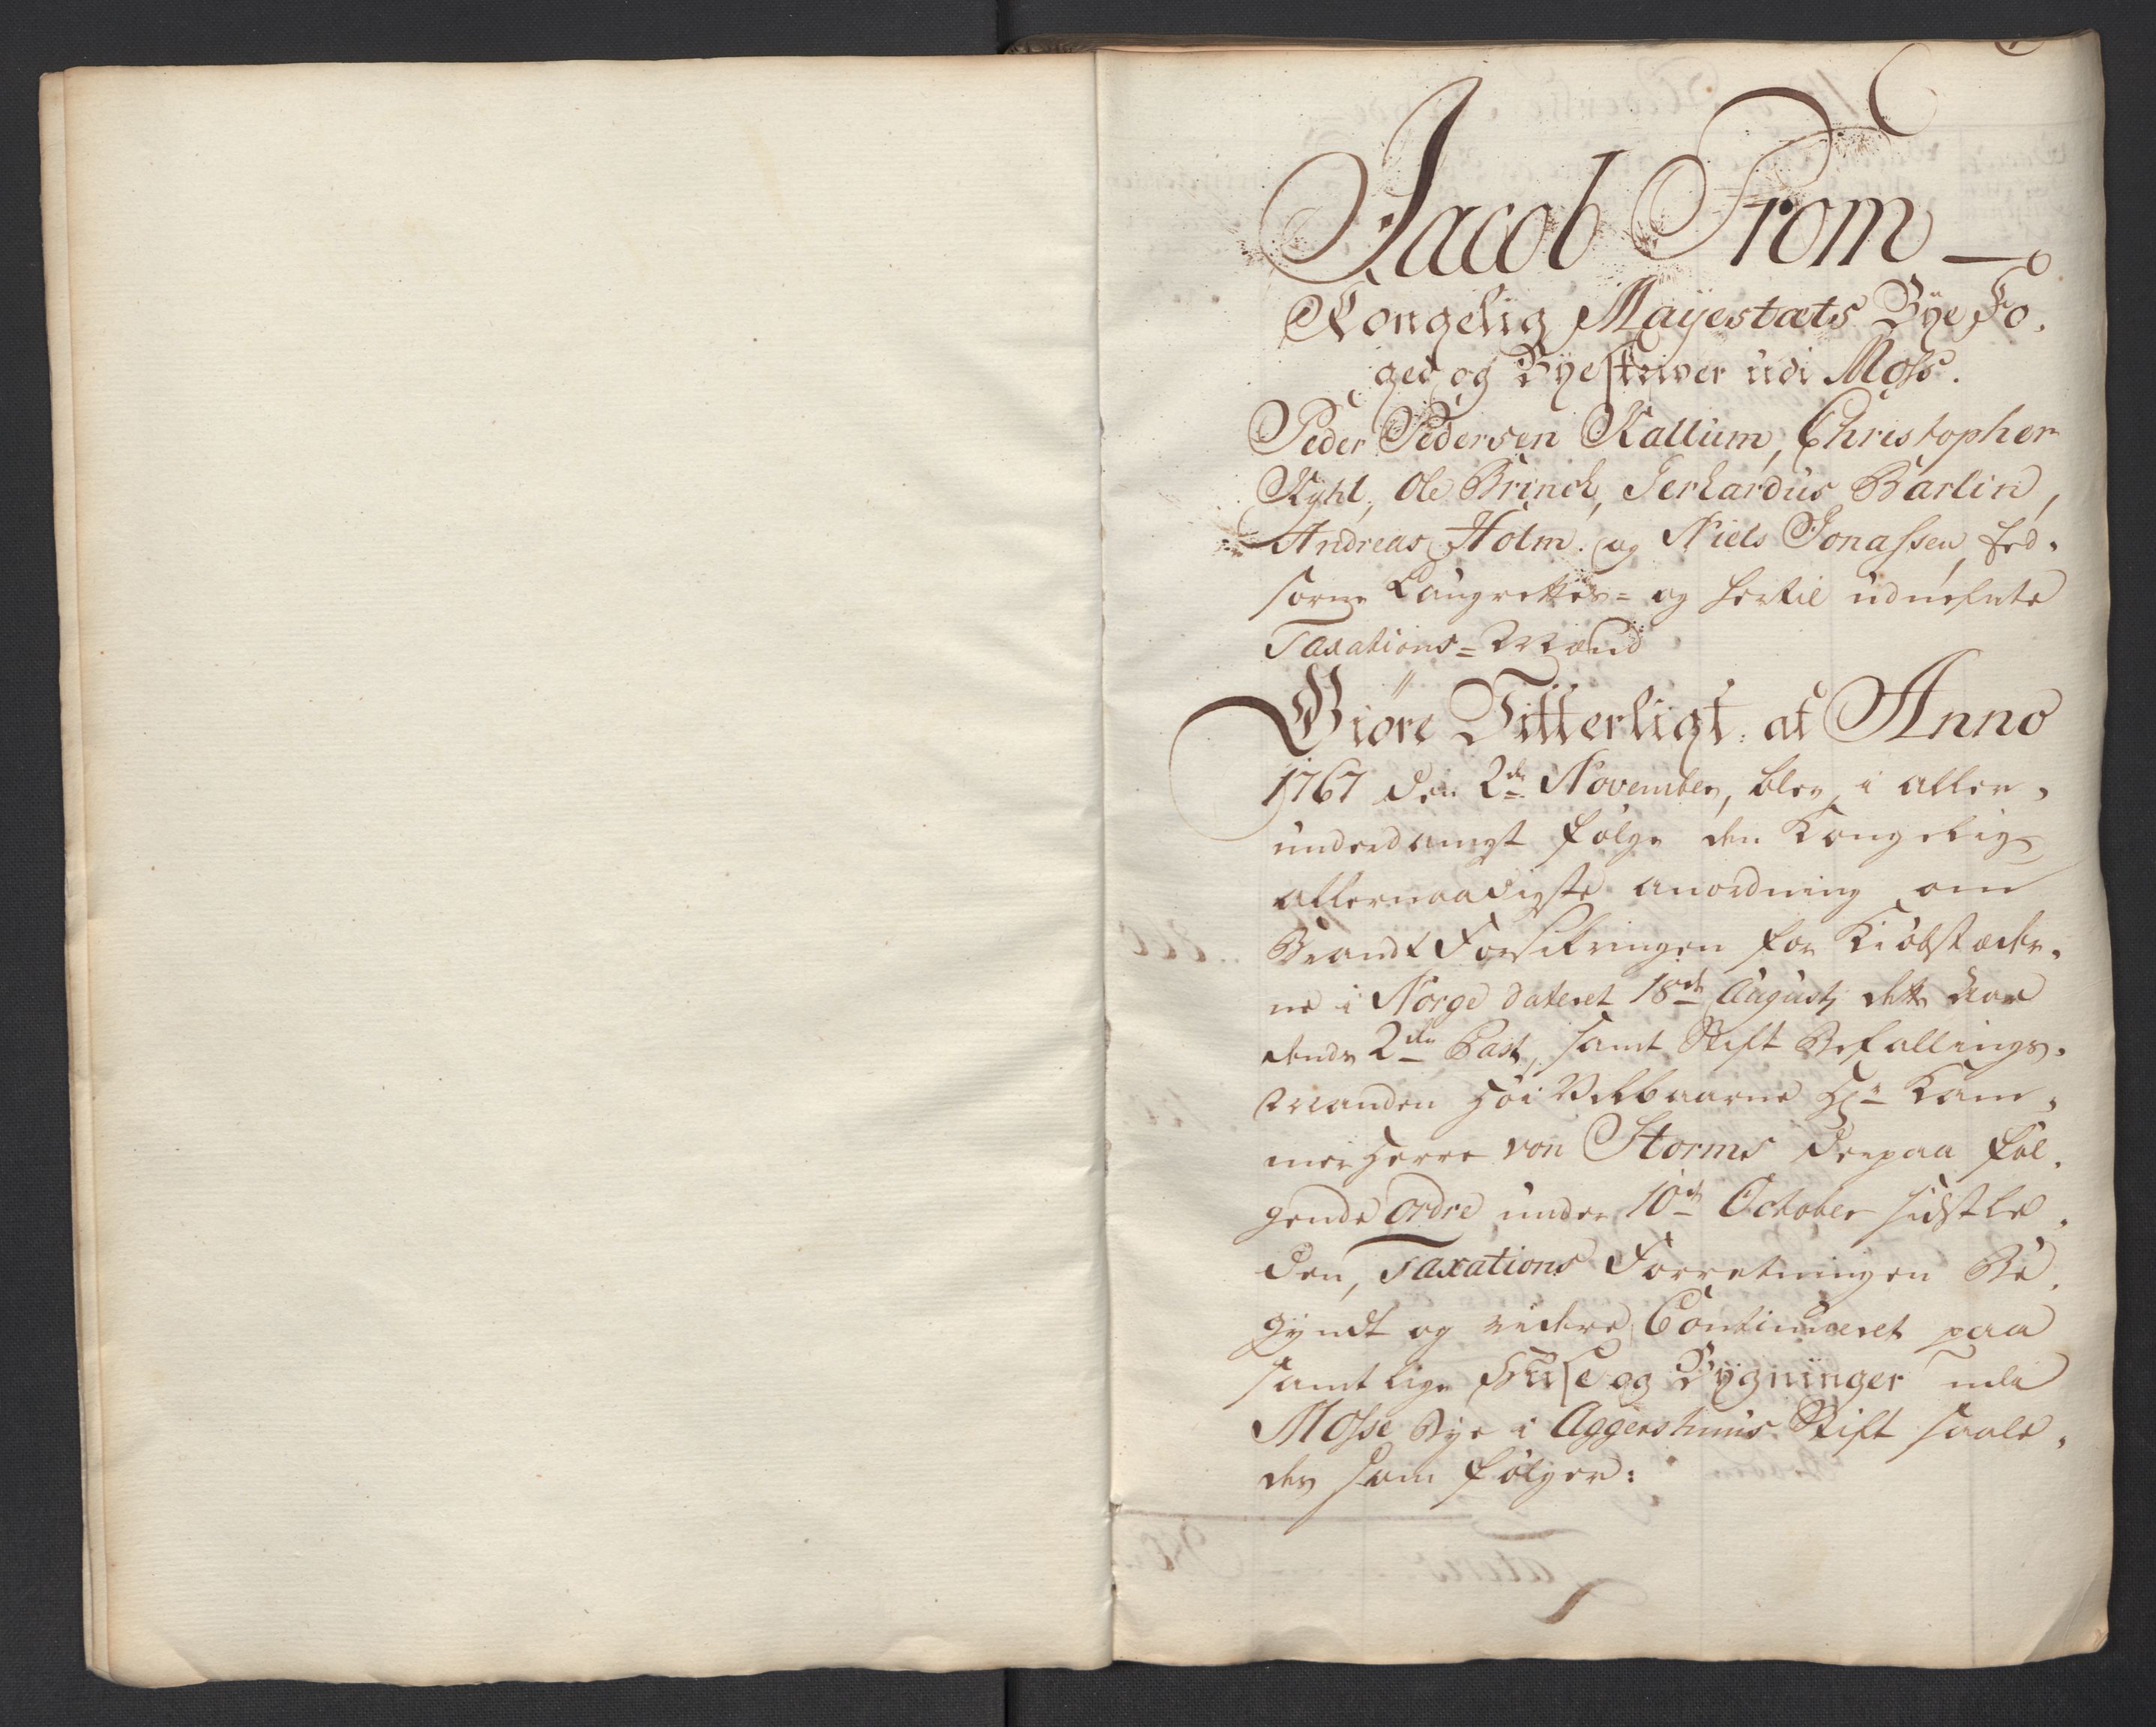 Jacob Prom
Kongelig Mayestæts Bye Fo-
ged og Byeskriver udi Moss.
Peder Pedersen Kallum, Christopher
Kyhl, Ole Brinch, Gerhardus Barlin,
Andreas Holm og Niels Jonassen, Eed-
sorne Laugrettes= og hertil udnefnte
Taxations=Mænd
Giöre Vitterligt at Anno
1767 den 2de November, blev i aller-
underdanigst fölge den Kongelige
allernaadigste anordning om
Brandt Forsikringen for Kiöbstæder-
ne i Norge dateret 18de Augustj dette Aar
dends 2den Post, samt Stift Befallings-
Manden Höi Velbaarne Hr. Kam-
mer Herre von Storms derpaa föl-
gende Ordre under 10de October sidstle-
den, Taxations Forretningen Be-
gyndt og videre Continueret paa
samtlige Huse og Bygninger udi
Mosse Bye i Aggershuus Stift saale-
des som fölger: